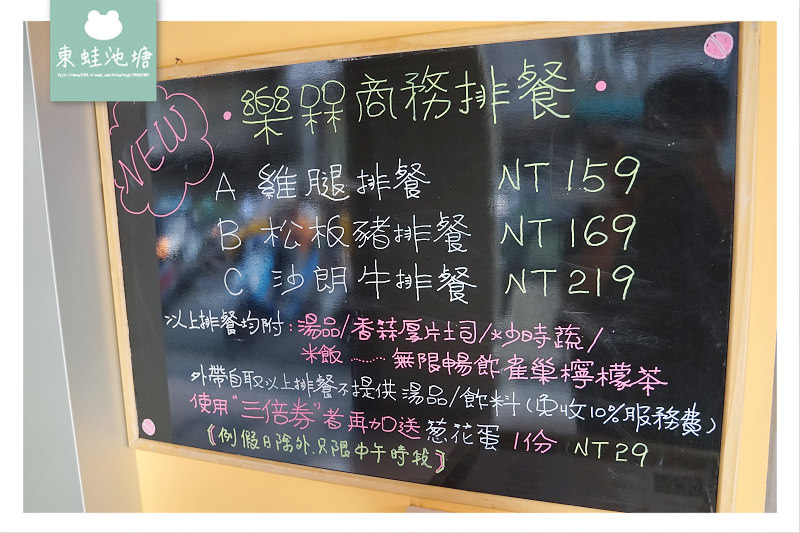 東蛙池塘
NEW
樂槑商務排餐
A 雞腿排餐 NT 159
B 松板豬排餐 NT 169
C 沙朗牛排餐 NT 219
以上排餐均附:湯品/香蒜厚片土司/炒時蔬/
米飯........無限暢飲雀巢檸檬茶
外帶自取以上排餐不提供湯品/飲料(免收10%服務費)
使用"三倍券"者再加送蔥花蛋1份 NT29
〖例假日除外.只限中午時段〗